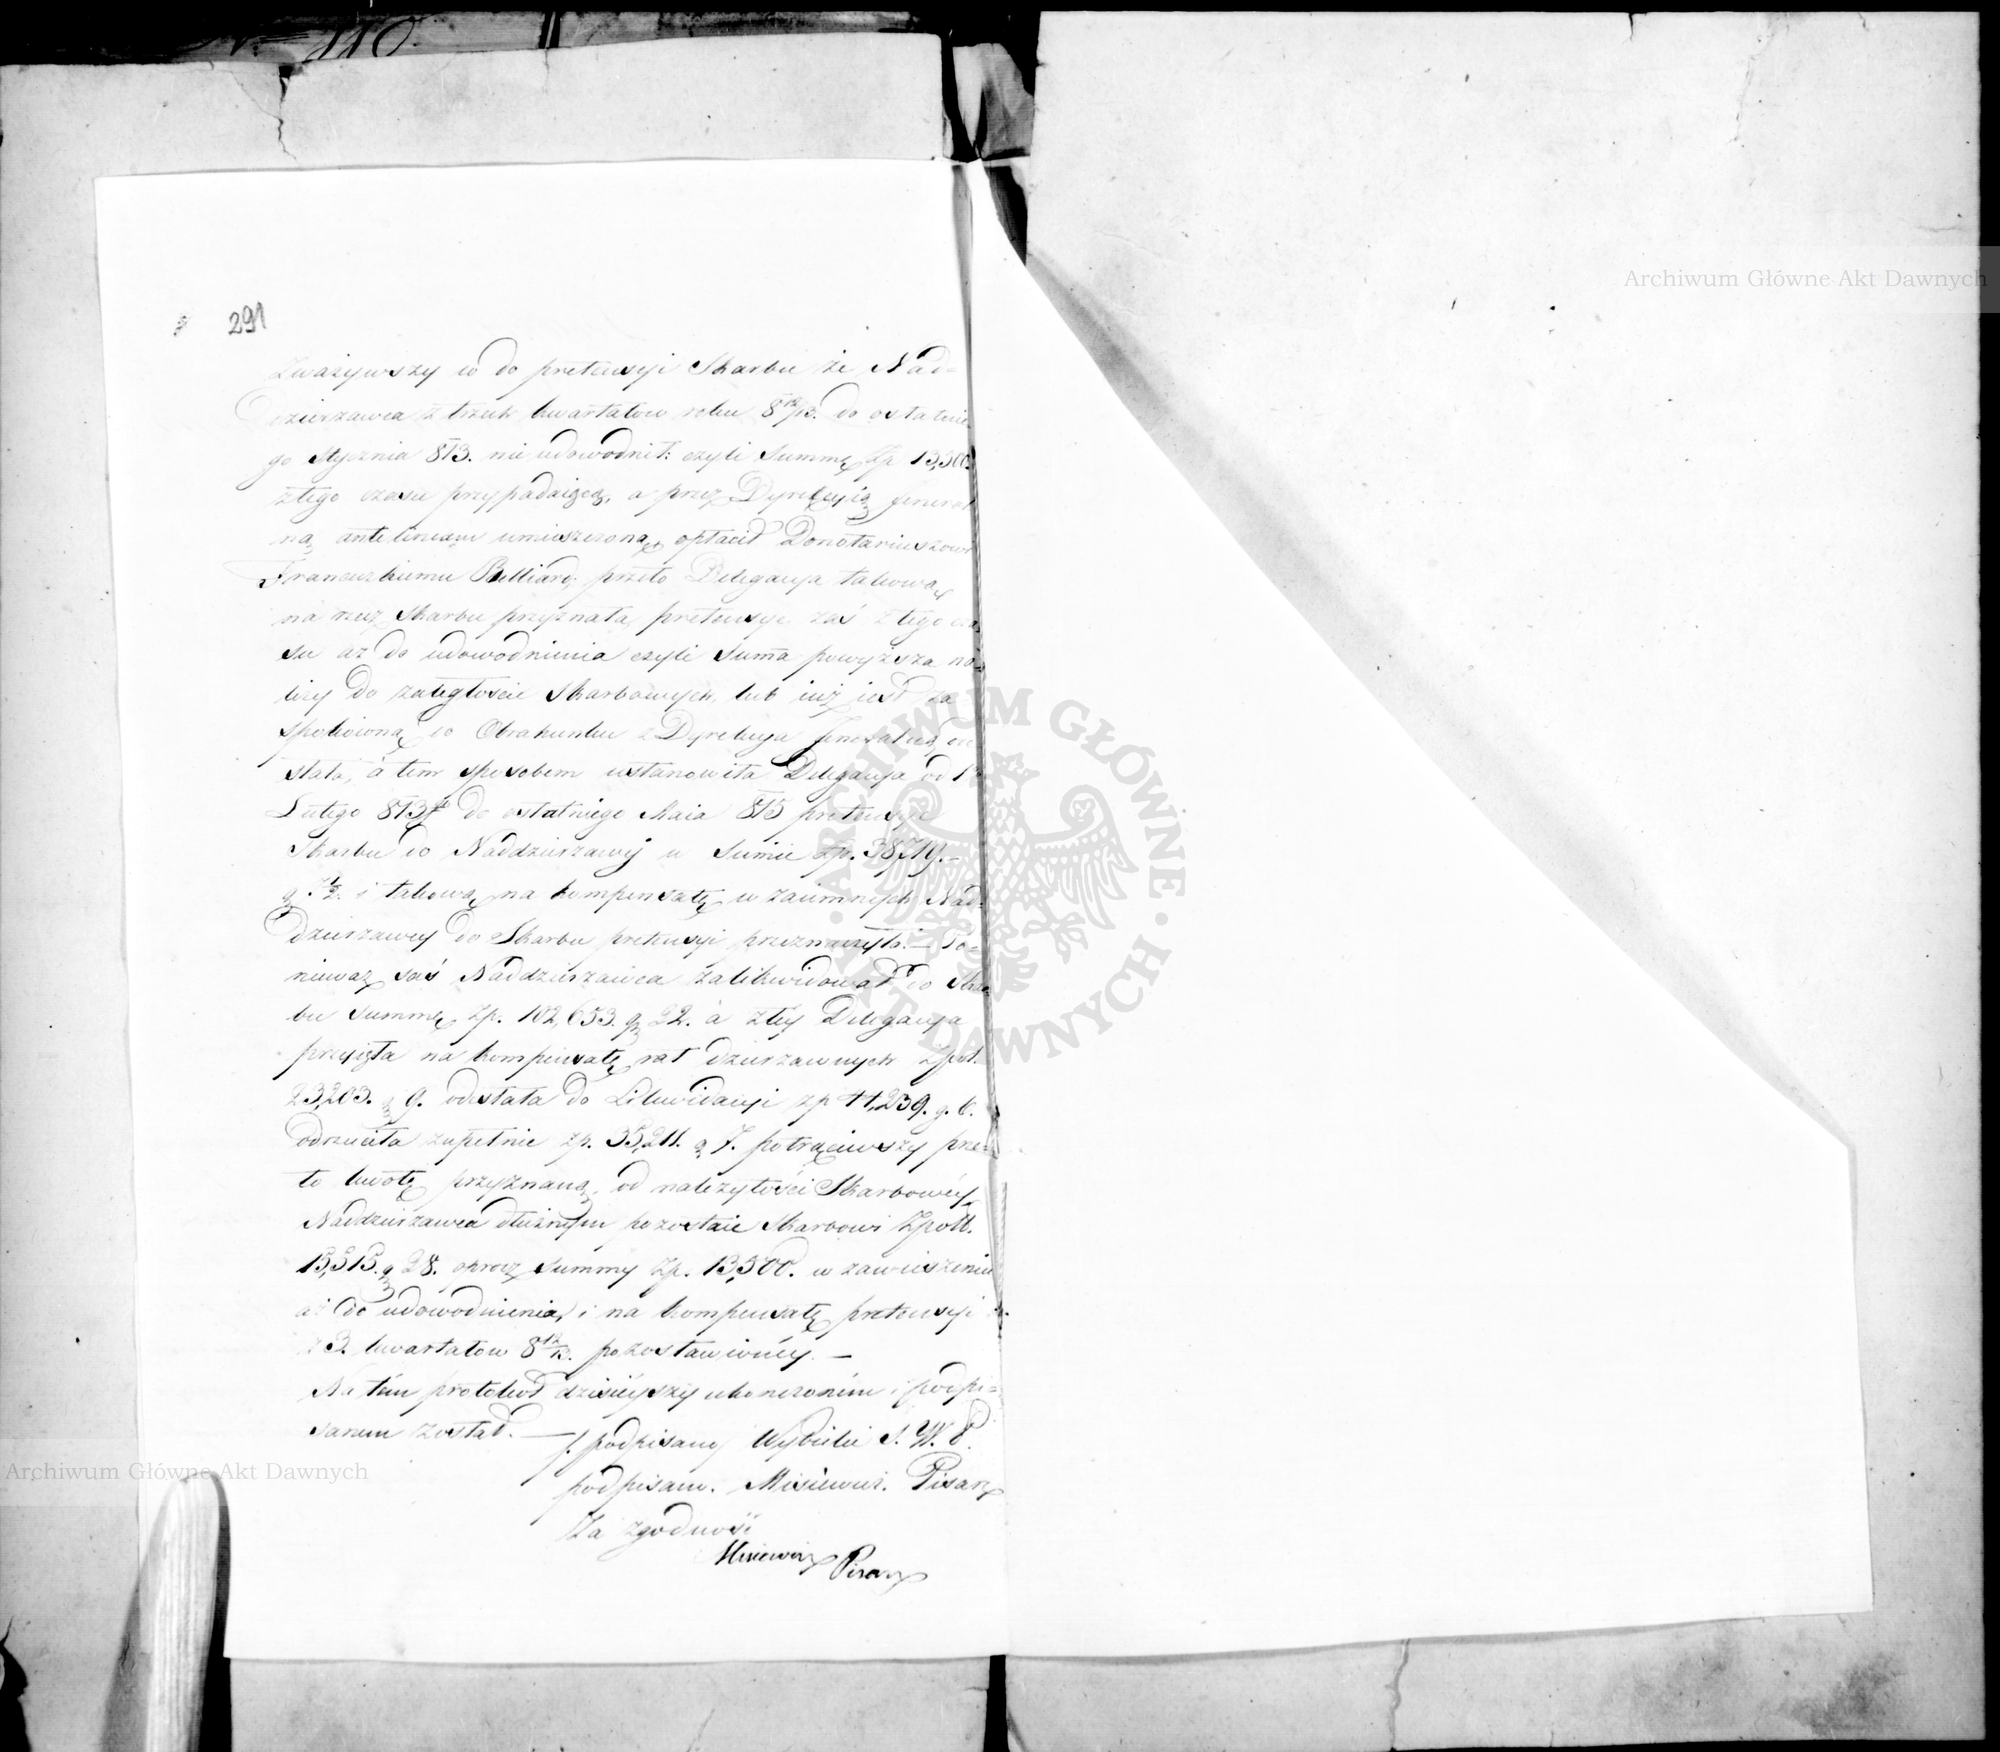 № 110.
291
Zważywszy co do pretensyi Skarbu że Nad=
dzierzawca z trzech kwartałow roku 8 12/13. do ostatnie
go Stycznia 813. nie udowodnił: czyli Summę Zp 13,500.
z tego czasu przypadaiącą, a przez Dyrekcyią General
ną antelineam umieszczoną, opłacił Donotariuszowi
Francuzkiemu Belliard; przeto Delegacya takową
na rzecz Skarbu przyznała, pretensye zaś z tego cza
su az do udowodnienia czyli Suma powyższa na
leży do zaległości Skarbowych, lub iuż iest za
spokoioną, co Obrahunku z Dyrekcyą Jeneralną
stała, a tem sposobem ustanowiła Delegacya od 1o
Lutego 813go do ostatniego Maia 815 pretensye
Skarbu do Naddzierzawcy w Sumie Zp. 38,719.—
g 7 1/2. i takową na kompensatę wzaiemnych Nad=
dzierzawcy do Skarbu pretensyi przeznaczyła.— Po=
nieważ zaś Naddzierzawca zalikwidował do Skar
bu Summę Zp. 102,653. g 22. a z tey Delegacya
przyięła na kompensatę rat dzierzawnych Zpol.
23,203. g 9. odesłała do Likwidacyi zp 44,239. g. 6.
odrzuciła zupełnie zp. 35,211. g 7. potrąciwszy prze=
to kwotę przyznaną, od należytości Skarbowéy
Naddzierzawca dłużnym pozostaie Skarbowi Zpoll.
15,515. g 28. oprocz Summy Zp. 13,500. w zawieszeniu
aż do udowodnienia, i na kompensatę pretensyi
z 3. kwartałow 8 12/13. pozostawionéy. —
Na tém protokoł dzisieyszy ukonczonim i podpi=
sanem został. —
/. podpisany Wybicki S. W. P.
podpisany. Misiewicz. Pisarz
Za zgodność
Misiewicz Pisarz
Archiwum Główne Akt Dawnych
Archiwum Główne Akt Dawnych
· ARCHIWUM GŁÓWNE · AKT DAWNYCH